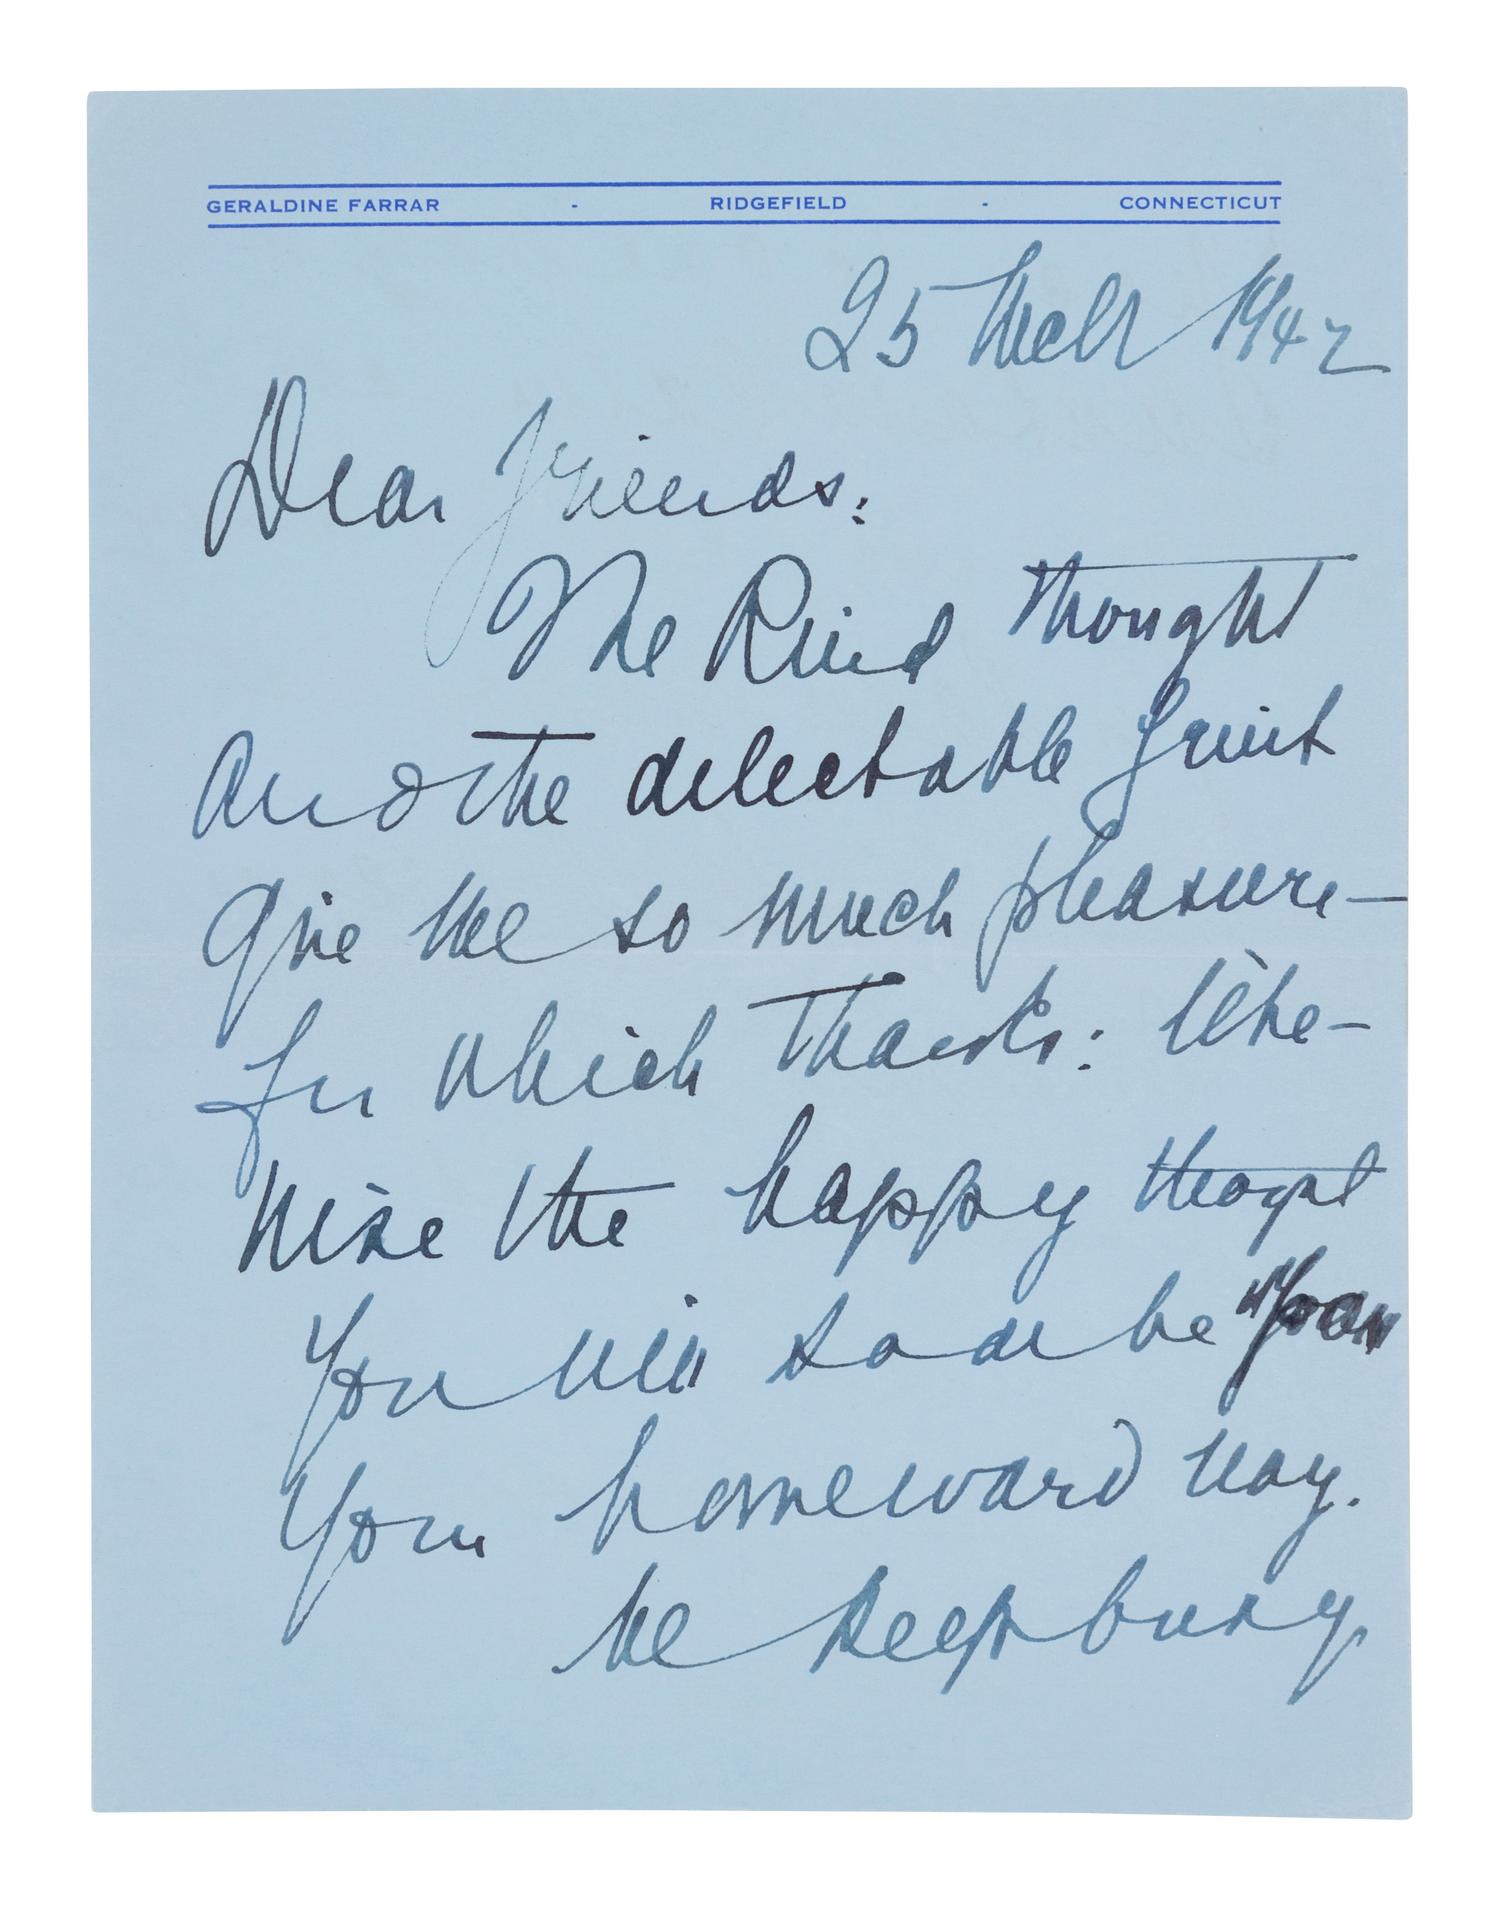 GERALDINE FARRAR - RIDGEFIELD - CONNECTICUT
25 Mch 1942
Dear friends:
The kind thought
and the delectable fruit
give me so much pleasure—
for which thanks: like-
wise the happy thought
you will soon be on
your homeward way.
We keep busy